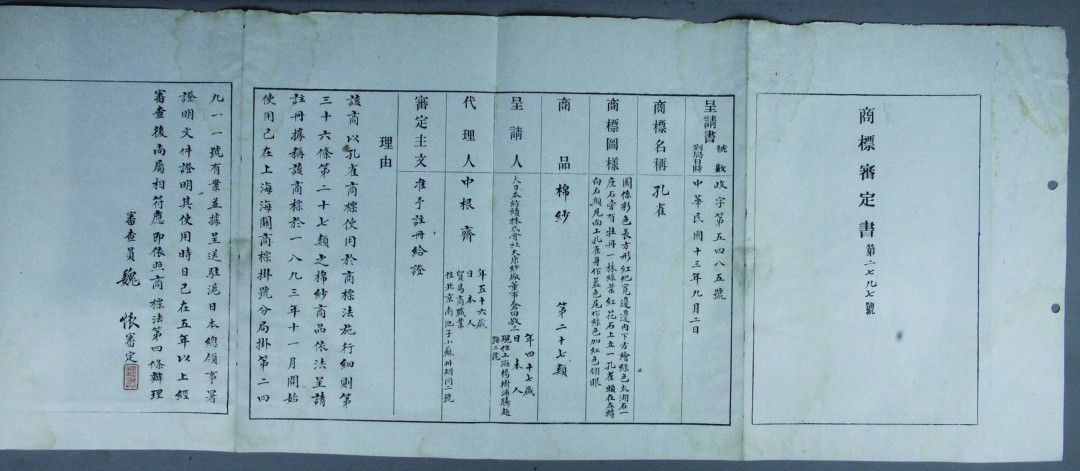 商標審定書第二七九七號
呈請書
號數 政字第五四八五號
到局日時 中華民國十三年九月二日
商標名稱 孔雀
商標圖樣 圖係彩色長方形紅地寬邊邊內下方繪綠色太湖石一
座石旁有牡丹一株綠葉紅花石上立一孔雀頭在左轉
向右顧尾向上孔雀身作藍色尾作綠色加紅色翎眼
商品 棉紗 第二十七類
呈請人 大日本紡績株式會社大康紗廠董事倉田敬二
年四十七歲
日本人
現住上海楊樹浦騰越
路二號
代理人 中根齊
年五十六歲
日本人
貿易商職業
住北京南池子小蘇州胡同二號
審定主文 准予註冊給證
理由
該商以孔雀商標使用於商標法施行細則第
三十六條第二十七類之棉紗商品依法呈請
註冊據稱該商標於一八九三年十一月開始
使用已在上海海關商標掛號分局掛第二四
九一一號有業並據呈送駐滬日本總領事署
證明文件證明其使用時日已在五年以上經
審查後尚屬相符應即依照商標法第四條辦理
審查員 魏 審定